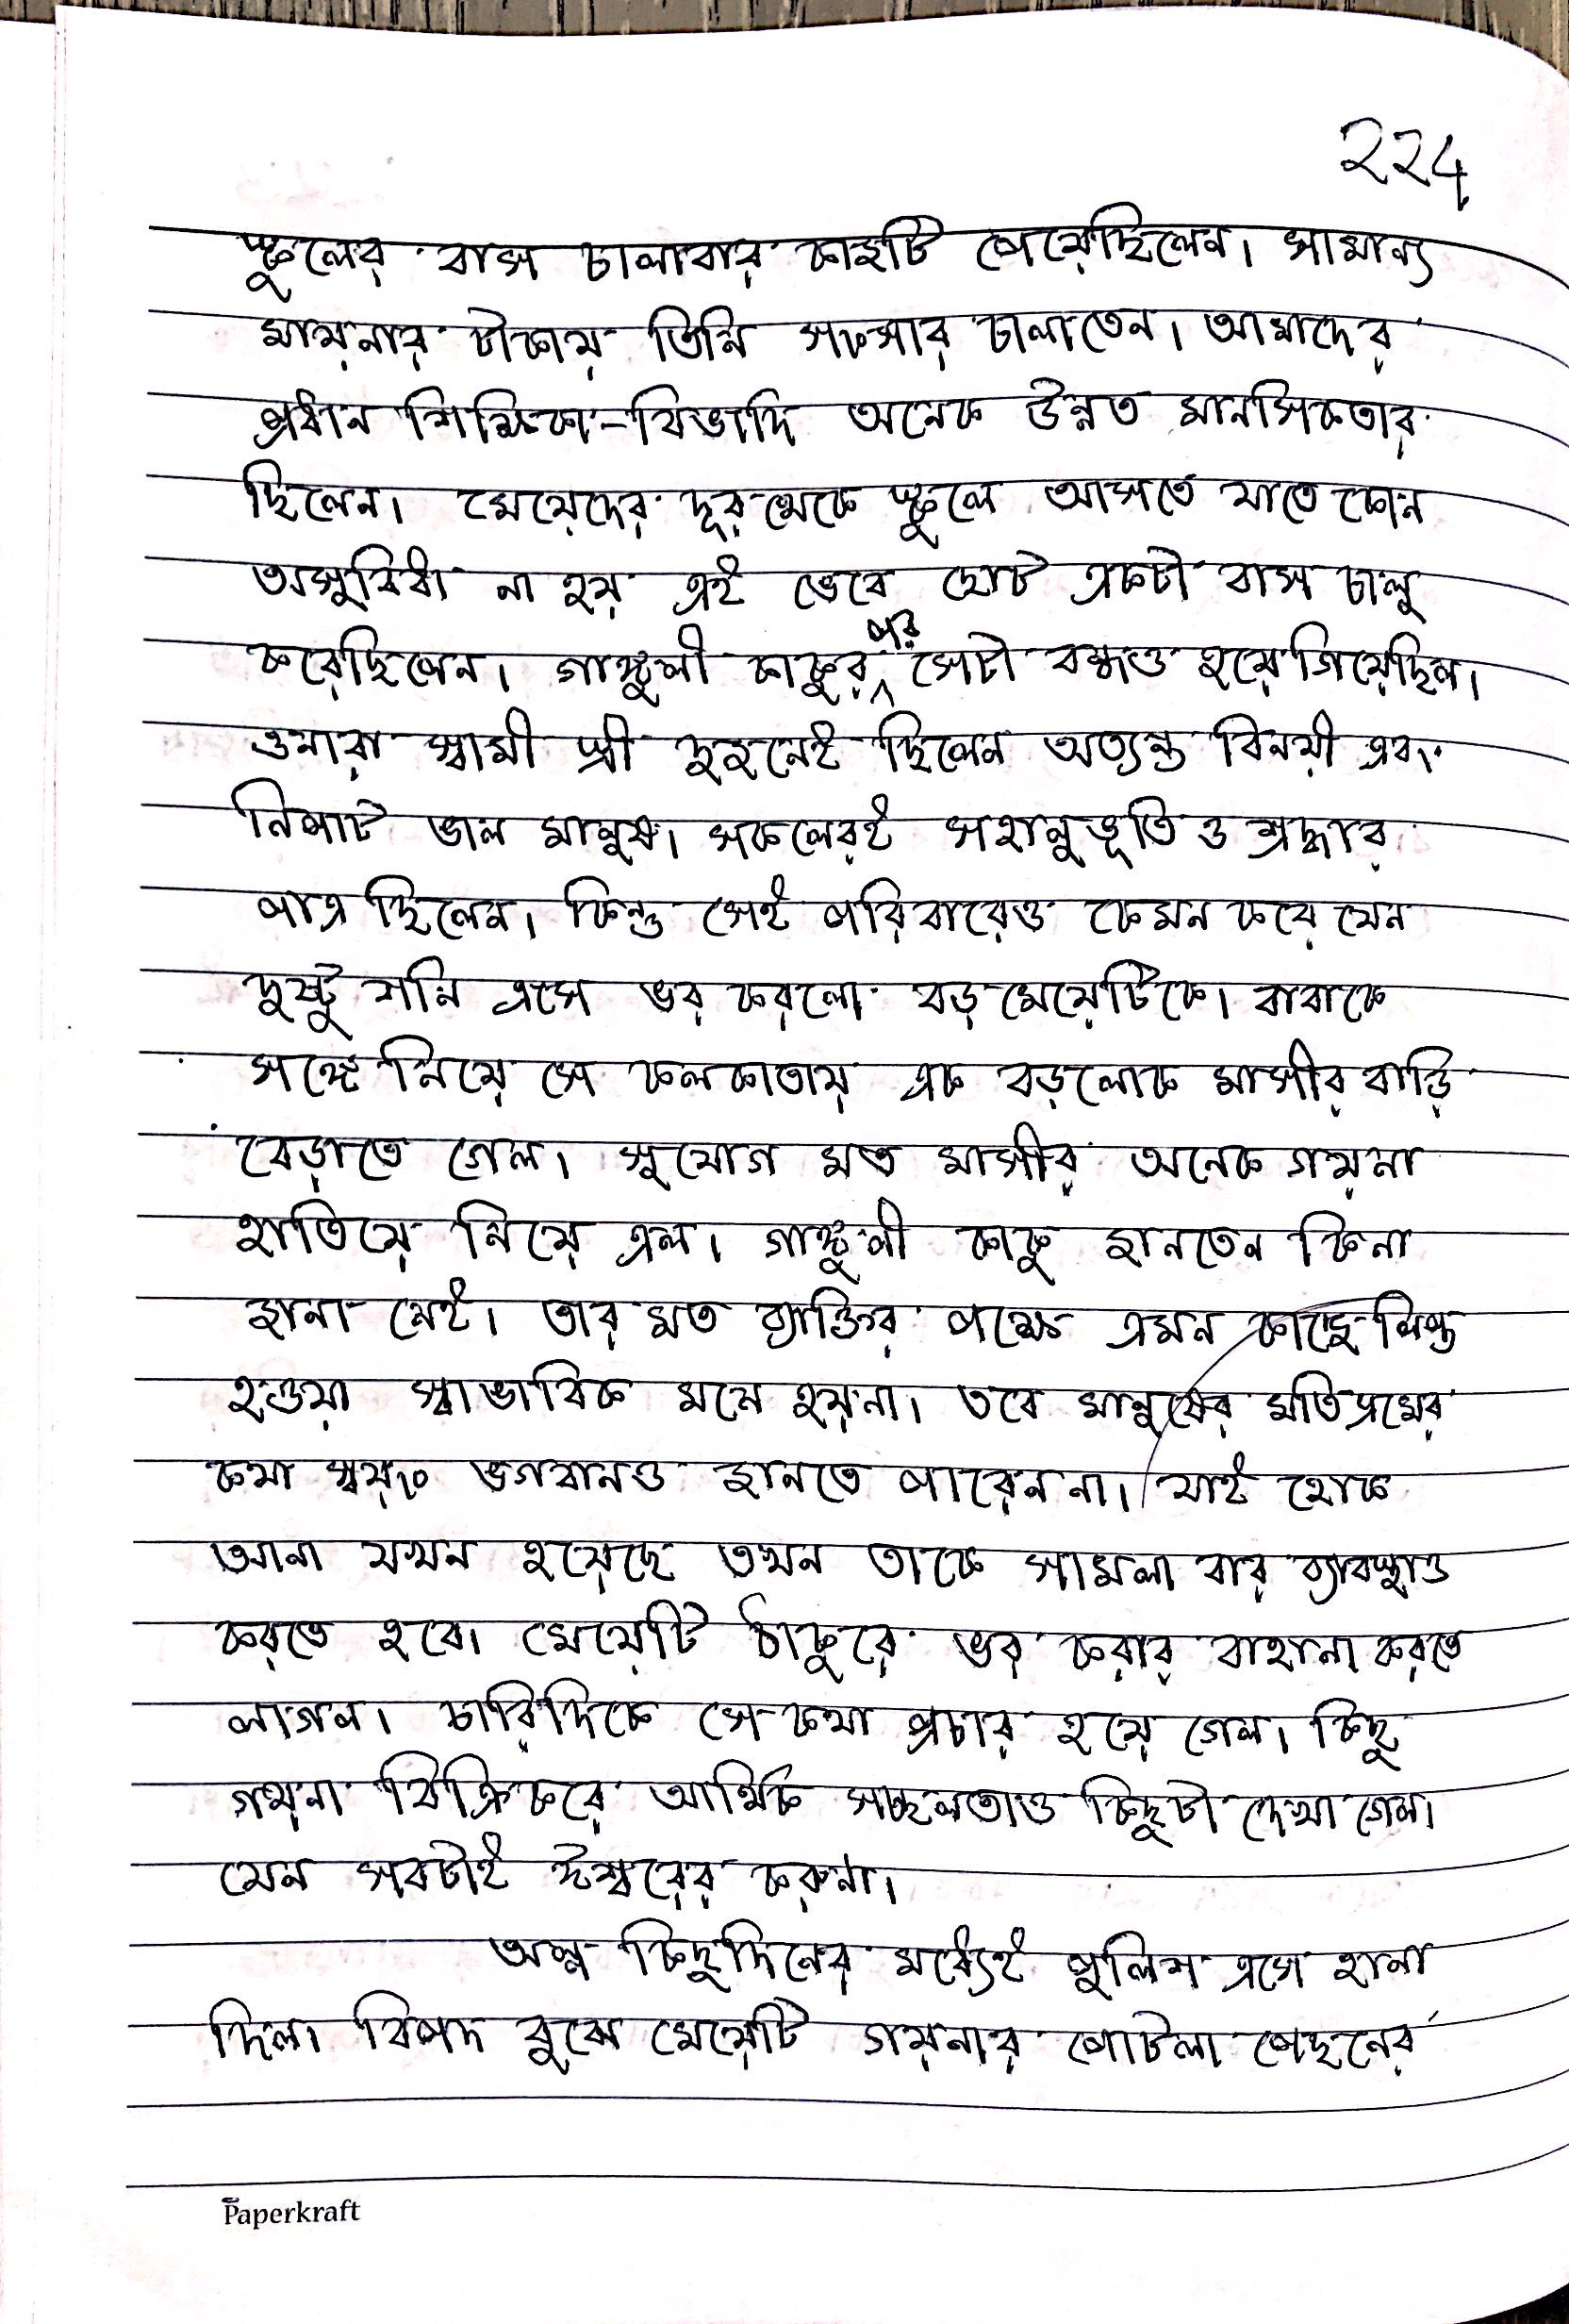 ২২৫
স্কুলের বাস চালাবার কাজটি পেয়েছিলেন। সামান্য
মায়নার টাকায় তিনি সংসার চালাতেন। আমাদের
প্রধান শিক্ষিকা-বিভাদি অনেক উন্নত মানসিকতার
ছিলেন। মেয়েদের দূর থেকে স্কুলে আসতে যাতে কোন
অসুবিধা না হয় এই ভেবে ছোট একটা বাস চালু
করেছিলেন। গাঙ্গুলী কাকুর পর সেটা বন্ধও হয়ে গিয়েছিল।
ওনারা স্বামী স্ত্রী দুজনেই ছিলেন অত্যন্ত বিনয়ী এবং
নিপাট ভাল মানুষ। সকলেরই সহানুভূতি ও শ্রদ্ধার
পাত্র ছিলেন। কিন্তু সেই পরিবারেও কেমন করে যেন
দুষ্টু শনি এসে ভর করলো বড় মেয়েটিকে। বাবাকে
সঙ্গে নিয়ে সে কলকাতায় এক বড়লোক মাসীর বাড়ি
বেড়াতে গেল। সুযোগ মত মাসীর অনেক গয়না
হাতিয়ে নিয়ে এল। গাঙ্গুলী কাকু জানতেন কিনা
জানা নেই। তার মত ব্যাক্তির পক্ষে এমন কাজে লিপ্ত
হওয়া স্বাভাবিক মনে হয়না। তবে মানুষের মতিভ্রমের
কথা স্বয়ং ভগবানও জানতে পারেন না। যাই হোক
আনা যখন হয়েছে তখন তাকে সামলা বার ব্যাবস্থাও
করতে হবে। মেয়েটি ঠাকুরে ভর করার বাহানা করতে
লাগল। চারিদিকে সে কথা প্রচার হয়ে গেল। কিছু
গয়না বিক্রি করে আর্থিক সচ্ছলতাও কিছুটা দেখা গেল।
যেন সবটাই ঈশ্বরের করুনা।
অল্প কিছুদিনের মধ্যেই পুলিশ এসে হানা
দিল। বিপদ বুঝে মেয়েটি গয়নার পোটলা পেছনের
Paperkraft